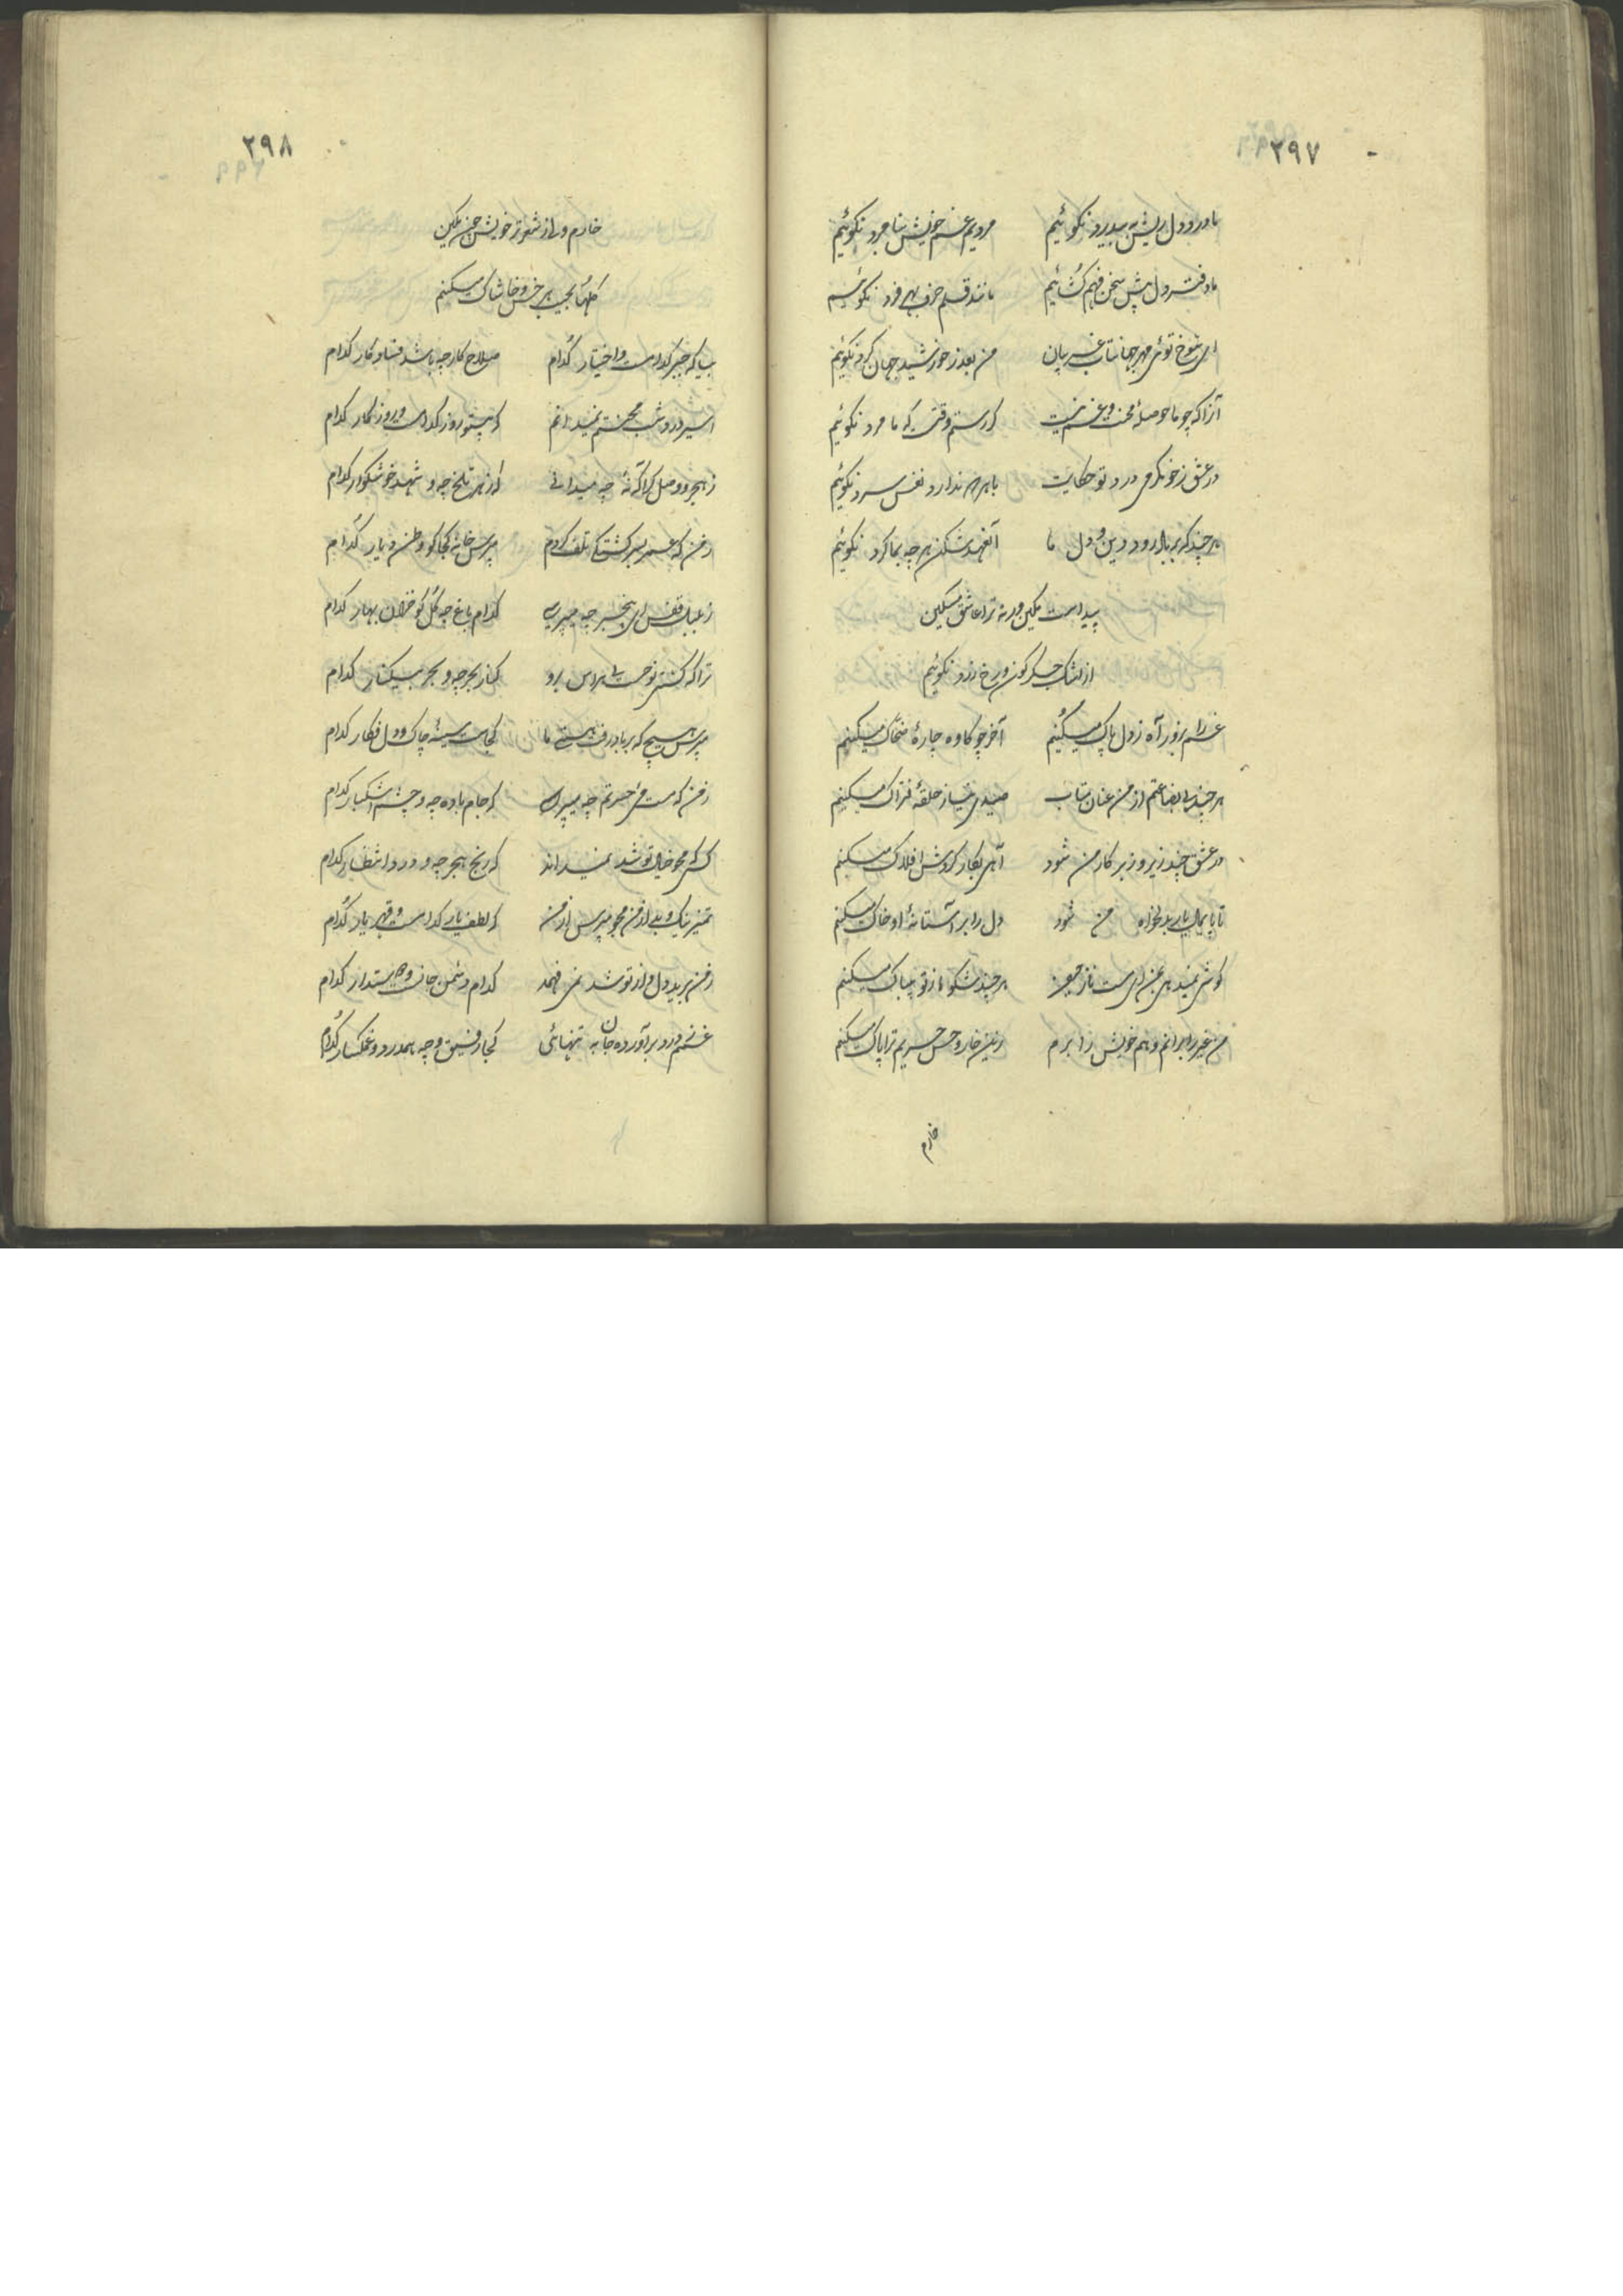 ۲۹۷
ما درد دل ریش به بیدرد نگوئیم مردیم غم خویش بنا مرد نگوئیم
ما دفتر دل پیش سخن فهم گشائیم مانند قلم حرف بهر فرد نگوئیم
ای شوخ توئی مهر جهانتاب غریبان من بعد ز خورشید جهان گرد نگوئیم
آنرا که چو ما حوصلهٔ محنت و غم نیست گر رستم وقت که ما مرد نگوئیم
در عشق ز خونگرمی درد تو حکایت با هر که ندارد نفس سرد نگوئیم
هر چند که بر باد رود دین و دل ما آنعهد شکن هر چه بما کرد نگوئیم
پیداست مکین ورنه ترا عاشق مسکین
از اشک جگرگون و رخ زرد نگوئیم
غم را بزور آه ز دل پاک میکنیم آخر چو کاوه چارهٔ ضحاک میکنیم
هر چند بی بضاعتم از من عنان متاب صیدی نیاز حلقهٔ فتراک میکنیم
در عشق چند زیر و زبر کار من شود آهی بکار گردش افلاک میکنیم
تا پایمال یار بدلخواه من شود دل را بر آستانهٔ او خاک میکنیم
گوشی نمیدهی بمن ای مست ناز هر چند شکوه از تو بیباک میکنیم
من غیر را برانم و هم خویش را برم زین خار و خس حریم ترا پاک میکنیم
خارم
۲۹۸
خارم ولی از شعر تر خویش چون مکین
گلها بجیب هر خس و خاشاک میکنم
بیا که جبر کدامست و اختیار کدام صلاح کار چه باشد فساد کار کدام
اسیر درد و شب محنتم نمیدانم که بیتو روز کدامست و روزگار کدام
ز هجر و وصل که آگه نهٔ چه میدانی که زهر تلخ چه و شهد خوشگوار کدام
ز من که عمر بسرگشتگی تلف کردم مپرس خانه کجا کو وطن دیار کدام
ز بلبل قفس ای بیخبر چه میپرسی کدام باغ چه گل کو خزان بهار کدام
ترا که کشتی نوح است بی هراس برو کنار بحر چه و بحر بیکنار کدام
مپرس هیچ که بر باد رفت هستی ما کجاست سینهٔ چاک و دل فگار کدام
ز من که مست می حسرتم چه میپرسی که جام باده چه و چشم اشکبار کدام
کسی که محو خیال تو شد نمیداند که رنج هجر چه و درد انتظار کدام
تمیز نیک و بد از من مجو مپرس از من که لطف یار کدامست و قهر یار کدام
ز من برید دل و از تو شد نمی فهمد کدام دشمن جانست و دوستدار کدام
غم و درد برآورده جان به تنهائی کجا رفیق و چه همدرد و غمگسار کدام